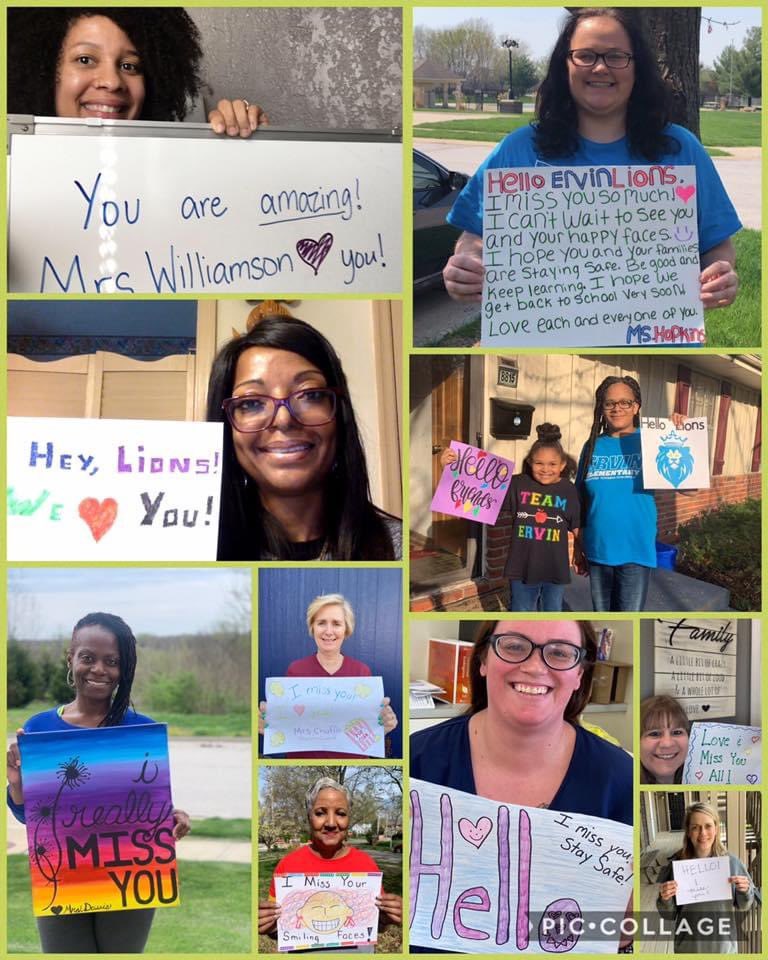 You are amazing!
Mrs Williamson you!
Hello Ervin Lions.
I miss you so much!
I can't wait to see you
and your happy faces.
I hope you and your families
are staying safe. Be good and
keep learning. I hope we
get back to school very soon!
Love each and every one of you.
Ms. Hopkins
Hey, Lions!
We You!
8815
Hello
friends
TEAM
ERVIN
ERVIN
ELEMENTARY
Hello Lions
i
really
MISS
YOU
Mrs. Davis
I miss you!
I
I Miss Your
Smiling Faces!
Hello
I miss you.
Stay Safe!
Family
A LITTLE BIT OF CRAZY
A LITTLE BIT OF LOUD
& A WHOLE LOT OF
LOVE
Love &
Miss You
All!
HELLO!
I
miss
you!
PIC•COLLAGE